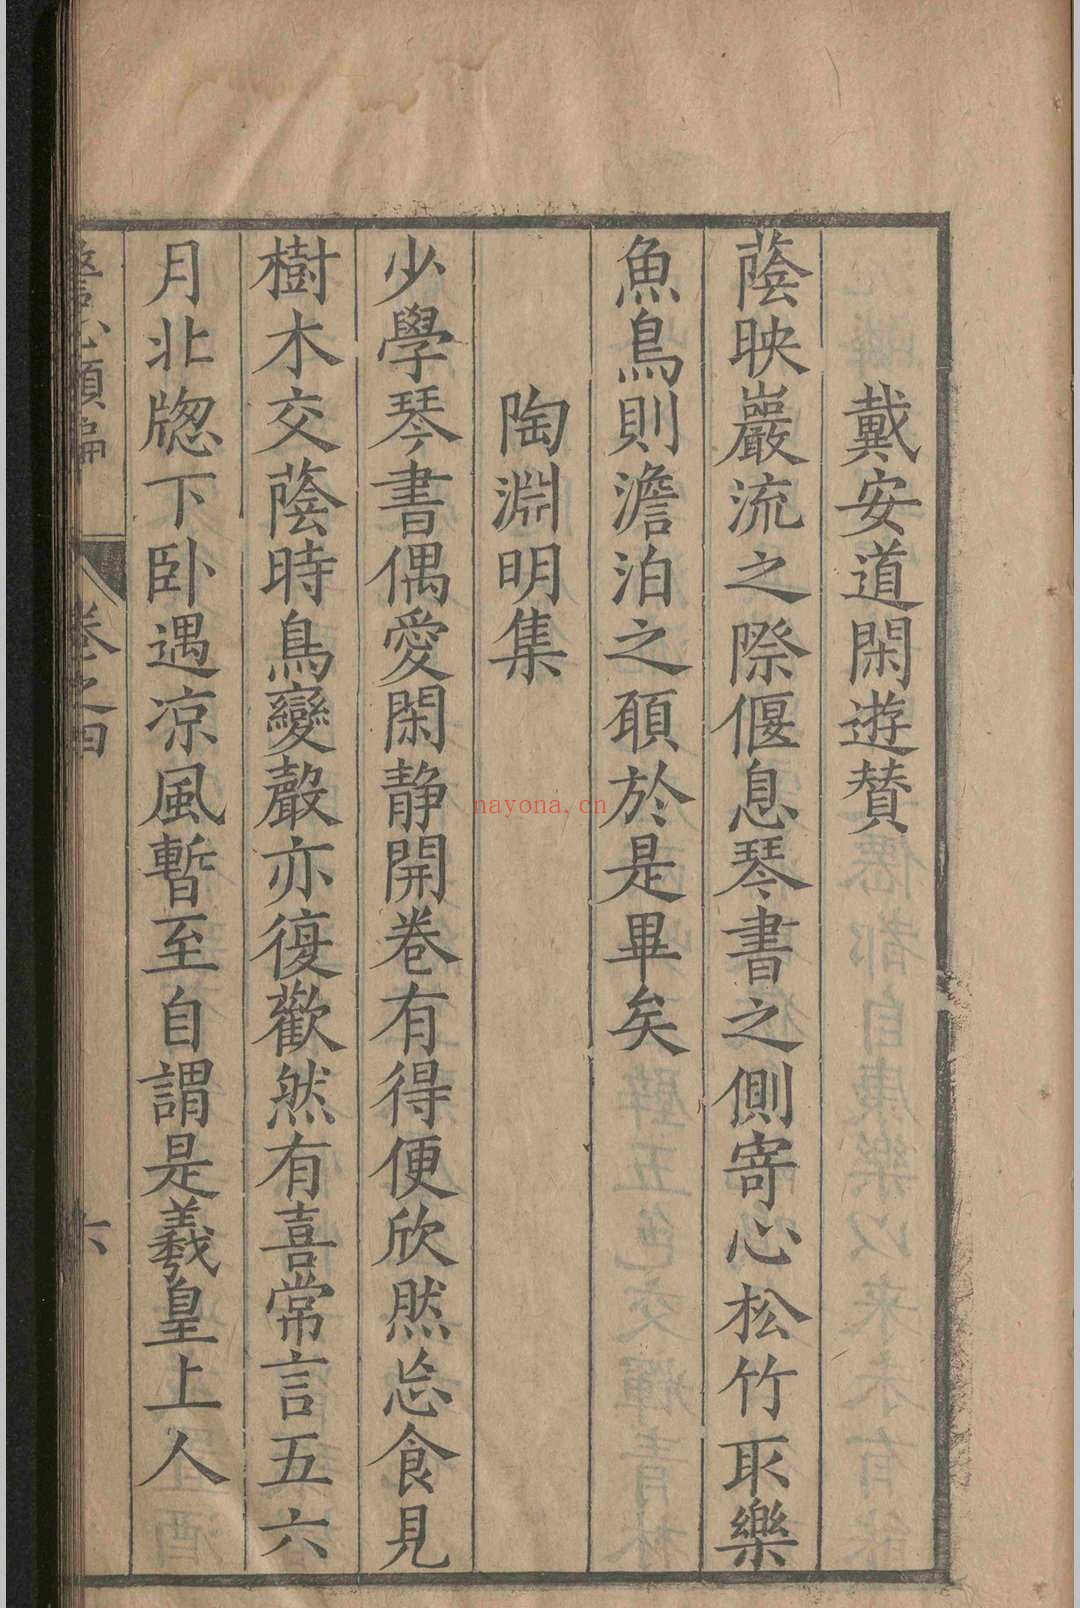 戴安道閑遊贊
蔭映巖流之際偃息琴書之側寄心松竹取樂
魚鳥則澹泊之願於是畢矣
陶淵明集
少學琴書偶愛閑靜開卷有得便欣然忘食見
樹木交蔭時鳥變聲亦復歡然有喜常言五六
月北牕下卧遇凉風暫至自謂是羲皇上人
類編
卷之四
六
nayona.cn